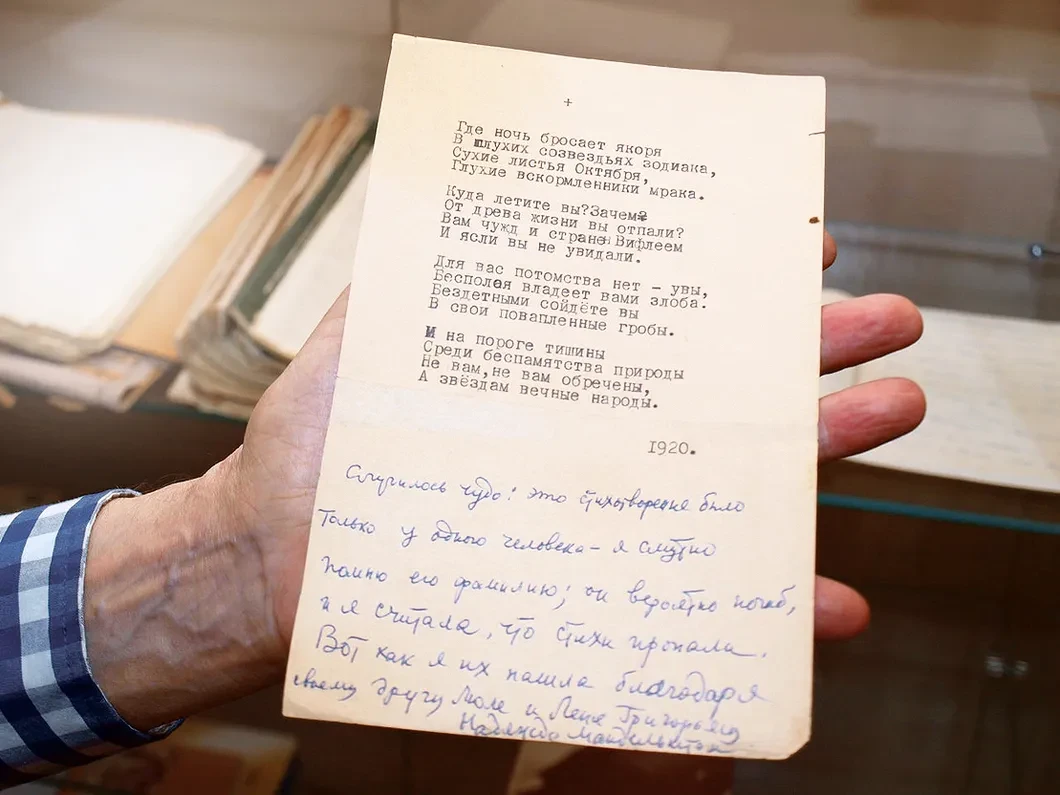 +
Где ночь бросает якоря
В глухих созвездьях зодиака,
Сухие листья Октября,
Глухие вскормленники мрака.
Куда летите вы? Зачем
От древа жизни вы отпали?
Вам чужд и странен Вифлеем
И ясли вы не увидали.
Для вас потомства нет – увы,
Бесполая владеет вами злоба.
Бездетными сойдёте вы
В свои повапленные гробы.
И на пороге тишины
Среди беспамятства природы
Не вам, не вам обречены,
А звёздам вечные народы.
1920.
Случилось чудо: это стихотворение было
только у одного человека – я смутно
помню его фамилию; он вероятно погиб,
и я считала, что стихи пропали.
Вот как я их нашла благодаря
своему другу Моле и Лене Григорьяну
Надежда Мандельштам